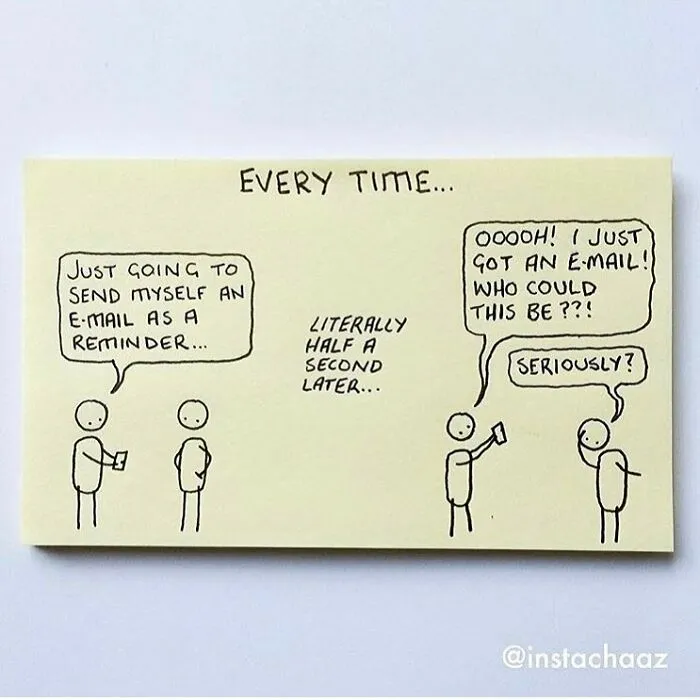 EVERY TIME...
JUST GOING TO
SEND MYSELF AN
E-MAIL AS A
REMINDER...
LITERALLY
HALF A
SECOND
LATER...
OOOOH! I JUST
GOT AN E-MAIL!
WHO COULD
THIS BE??!
SERIOUSLY?
@instachaaz